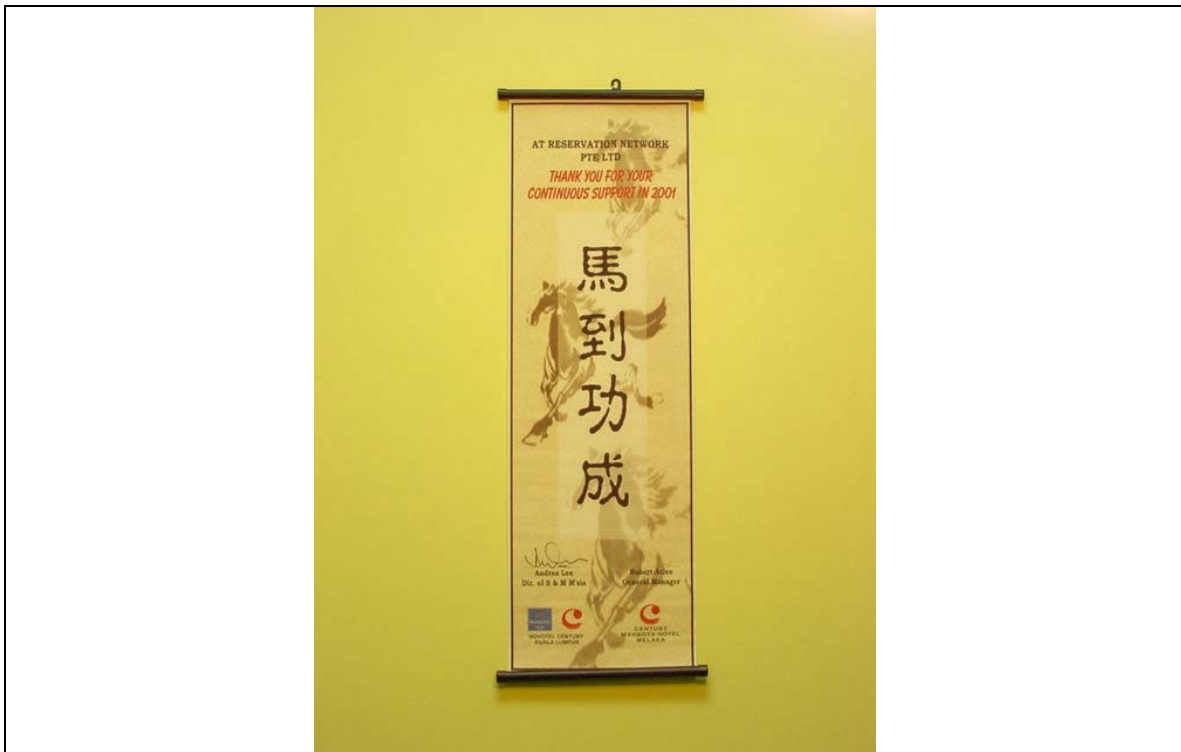 AT RESERVATION NETWORK
PTE LTD
THANK YOU FOR YOUR
CONTINUOUS SUPPORT IN 2001
馬
到
功
成
Andrea Lee
Dir. of S & M M'sia
Robert Atlee
General Manager
NOVOTEL CENTURY
KUALA LUMPUR
CENTURY
MAHKOTA HOTEL
MELAKA